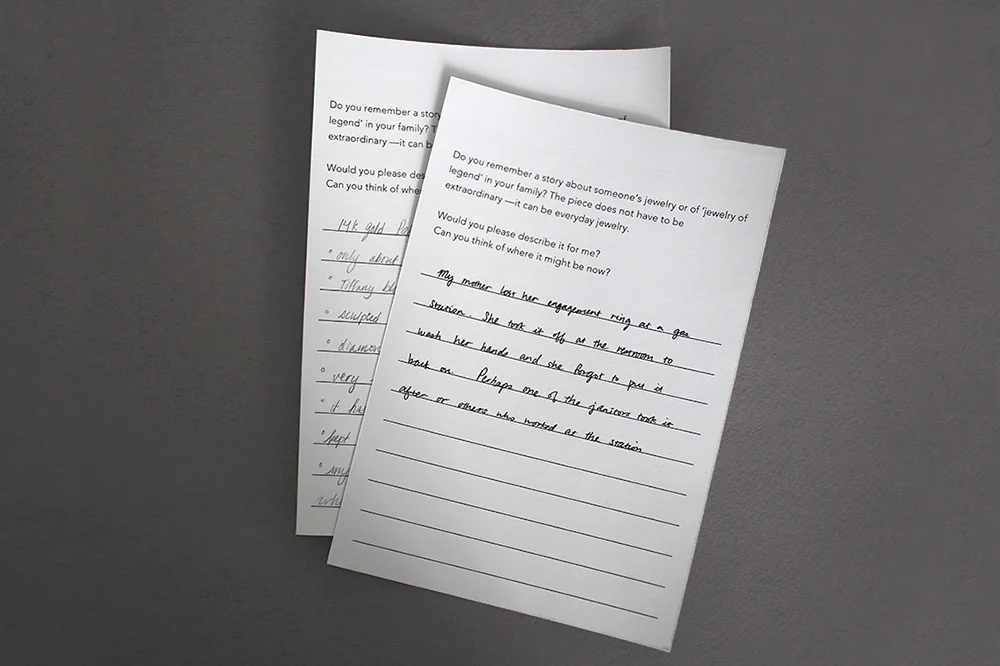 Do you remember a stor
legend' in your family? T
extraordinary —it can b
Would you please des
Can you think of whe
14k gold
° only about
° Tiffany
° sculpted
° diamon
° very
° it has
° kept
° my
Do you remember a story about someone's jewelry or of 'jewelry of
legend' in your family? The piece does not have to be
extraordinary —it can be everyday jewelry.
Would you please describe it for me?
Can you think of where it might be now?
My mother lost her engagement ring at a gas
station. She took it off at the restroom to
wash her hands and she forgot to put it
back on. Perhaps one of the janitors took it
after or others who worked at the station